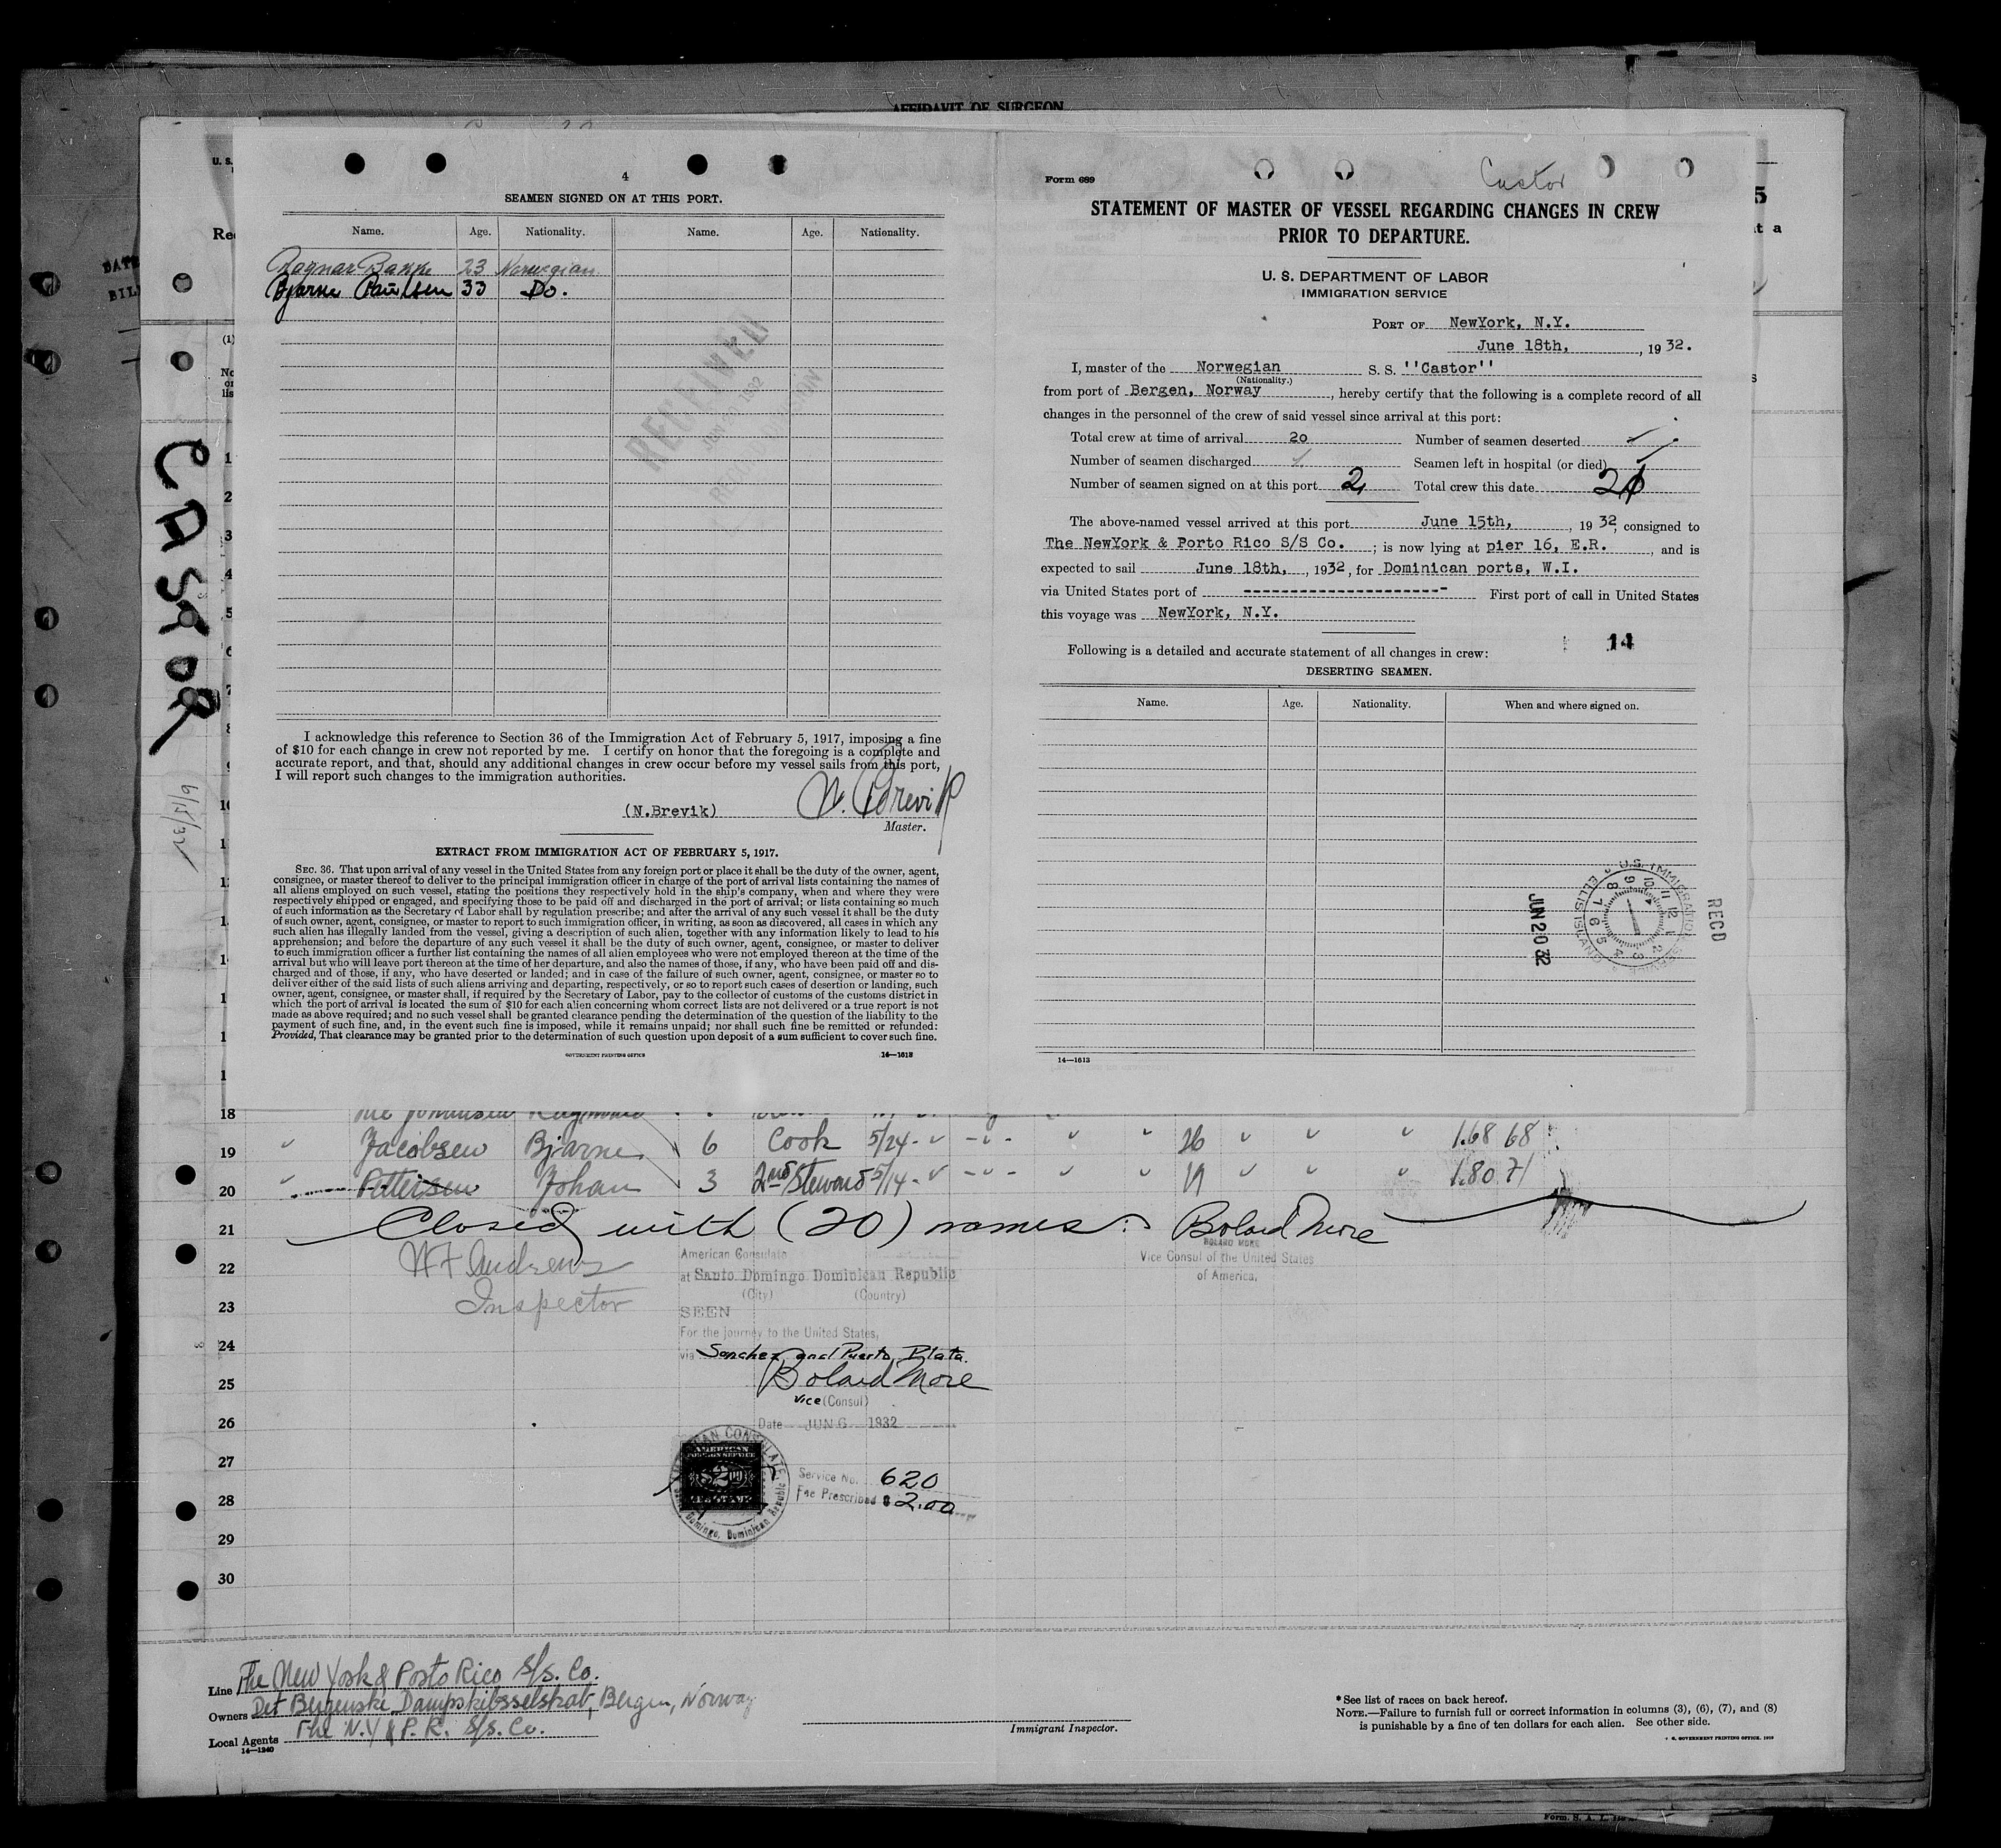 AFFIDAVIT OF SURGEON
4
SEAMEN SIGNED ON AT THIS PORT.
Name. Age. Nationality. Name. Age. Nationality.
Ragnar Bakke 23 Norwegian
Bjarne Paulsen 33 Do.
RECEIVED
I acknowledge this reference to Section 36 of the Immigration Act of February 5, 1917, imposing a fine
of $10 for each change in crew not reported by me. I certify on honor that the foregoing is a complete and
accurate report, and that, should any additional changes in crew occur before my vessel sails from this port,
I will report such changes to the immigration authorities.
(N.Brevik) N. Brevik
Master.
EXTRACT FROM IMMIGRATION ACT OF FEBRUARY 5, 1917.
SEC. 36. That upon arrival of any vessel in the United States from any foreign port or place it shall be the duty of the owner, agent,
consignee, or master thereof to deliver to the principal immigration officer in charge of the port of arrival lists containing the names of
all aliens employed on such vessel, stating the positions they respectively hold in the ship's company, when and where they were
respectively shipped or engaged, and specifying those to be paid off and discharged in the port of arrival; or lists containing so much
of such information as the Secretary of Labor shall by regulation prescribe; and after the arrival of any such vessel it shall be the duty
of such owner, agent, consignee, or master to report to such immigration officer, in writing, as soon as discovered, all cases in which any
such alien has illegally landed from the vessel, giving a description of such alien, together with any information likely to lead to his
apprehension; and before the departure of any such vessel it shall be the duty of such owner, agent, consignee, or master to deliver
to such immigration officer a further list containing the names of all alien employees who were not employed thereon at the time of the
arrival but who will leave port thereon at the time of her departure, and also the names of those, if any, who have been paid off and dis-
charged and of those, if any, who have deserted or landed; and in case of the failure of such owner, agent, consignee, or master so to
deliver either of the said lists of such aliens arriving and departing, respectively, or so to report such cases of desertion or landing, such
owner, agent, consignee, or master shall, if required by the Secretary of Labor, pay to the collector of customs of the customs district in
which the port of arrival is located the sum of $10 for each alien concerning whom correct lists are not delivered or a true report is not
made as above required; and no such vessel shall be granted clearance pending the determination of the question of the liability to the
payment of such fine, and, in the event such fine is imposed, while it remains unpaid; nor shall such fine be remitted or refunded:
Provided, That clearance may be granted prior to the determination of such question upon deposit of a sum sufficient to cover such fine.
GOVERNMENT PRINTING OFFICE 14—1613
Form 689
Castor
STATEMENT OF MASTER OF VESSEL REGARDING CHANGES IN CREW
PRIOR TO DEPARTURE.
U. S. DEPARTMENT OF LABOR
IMMIGRATION SERVICE
PORT OF NewYork, N.Y.
June 18th, , 19 32.
I, master of the Norwegian S. S. ''Castor''
(Nationality.)
from port of Bergen, Norway , hereby certify that the following is a complete record of all
changes in the personnel of the crew of said vessel since arrival at this port:
Total crew at time of arrival 20 Number of seamen deserted
Number of seamen discharged Seamen left in hospital (or died)
Number of seamen signed on at this port 2 Total crew this date
The above-named vessel arrived at this port June 15th, , 19 32, consigned to
The NewYork & Porto Rico S/S Co. ; is now lying at pier 16, E.R. , and is
expected to sail June 18th, , 1932, for Dominican ports, W.I.
via United States port of ---------------------- First port of call in United States
this voyage was NewYork, N.Y.
14
Following is a detailed and accurate statement of all changes in crew:
DESERTING SEAMEN.
Name. Age. Nationality. When and where signed on.
RECD
U.S. IMMIGRATION SERVICE ELLIS ISLAND
JUN 20 32
14—1613
CASTOR
6/15/32
18
19 Jacobsen Bjarne 6 Cook 5/24 26 168 68
20 Pettersen Johan 3 2nd Steward 5/14 19 180 71
21 Closed with (20) names: Bolard More
BOLARD MORE
Vice Consul of the United States
of America.
22 W F Andrews
23 Inspector
24
25
26
27
28
29
30
American Consulate
at Santo Domingo Dominican Republic
(City) (Country)
SEEN
For the journey to the United States,
via Sanchez and Puerto Plata.
Bolard More
Vice (Consul)
Date JUN 6 1932
AMERICAN CONSULATE
Santo Domingo, Dominican Republic
AMERICAN
FOREIGN SERVICE
$2.00
FEE STAMP
Service No. 620
Fee Prescribed $ 2.00
Line The New York & Porto Rico S/S. Co.
Owners Det Bergenske Dampskibsselskab, Bergen, Norway
Local Agents The N.Y & P. R. S/S. Co.
14—1240
Immigrant Inspector.
* See list of races on back hereof.
NOTE.—Failure to furnish full or correct information in columns (3), (6), (7), and (8)
is punishable by a fine of ten dollars for each alien. See other side.